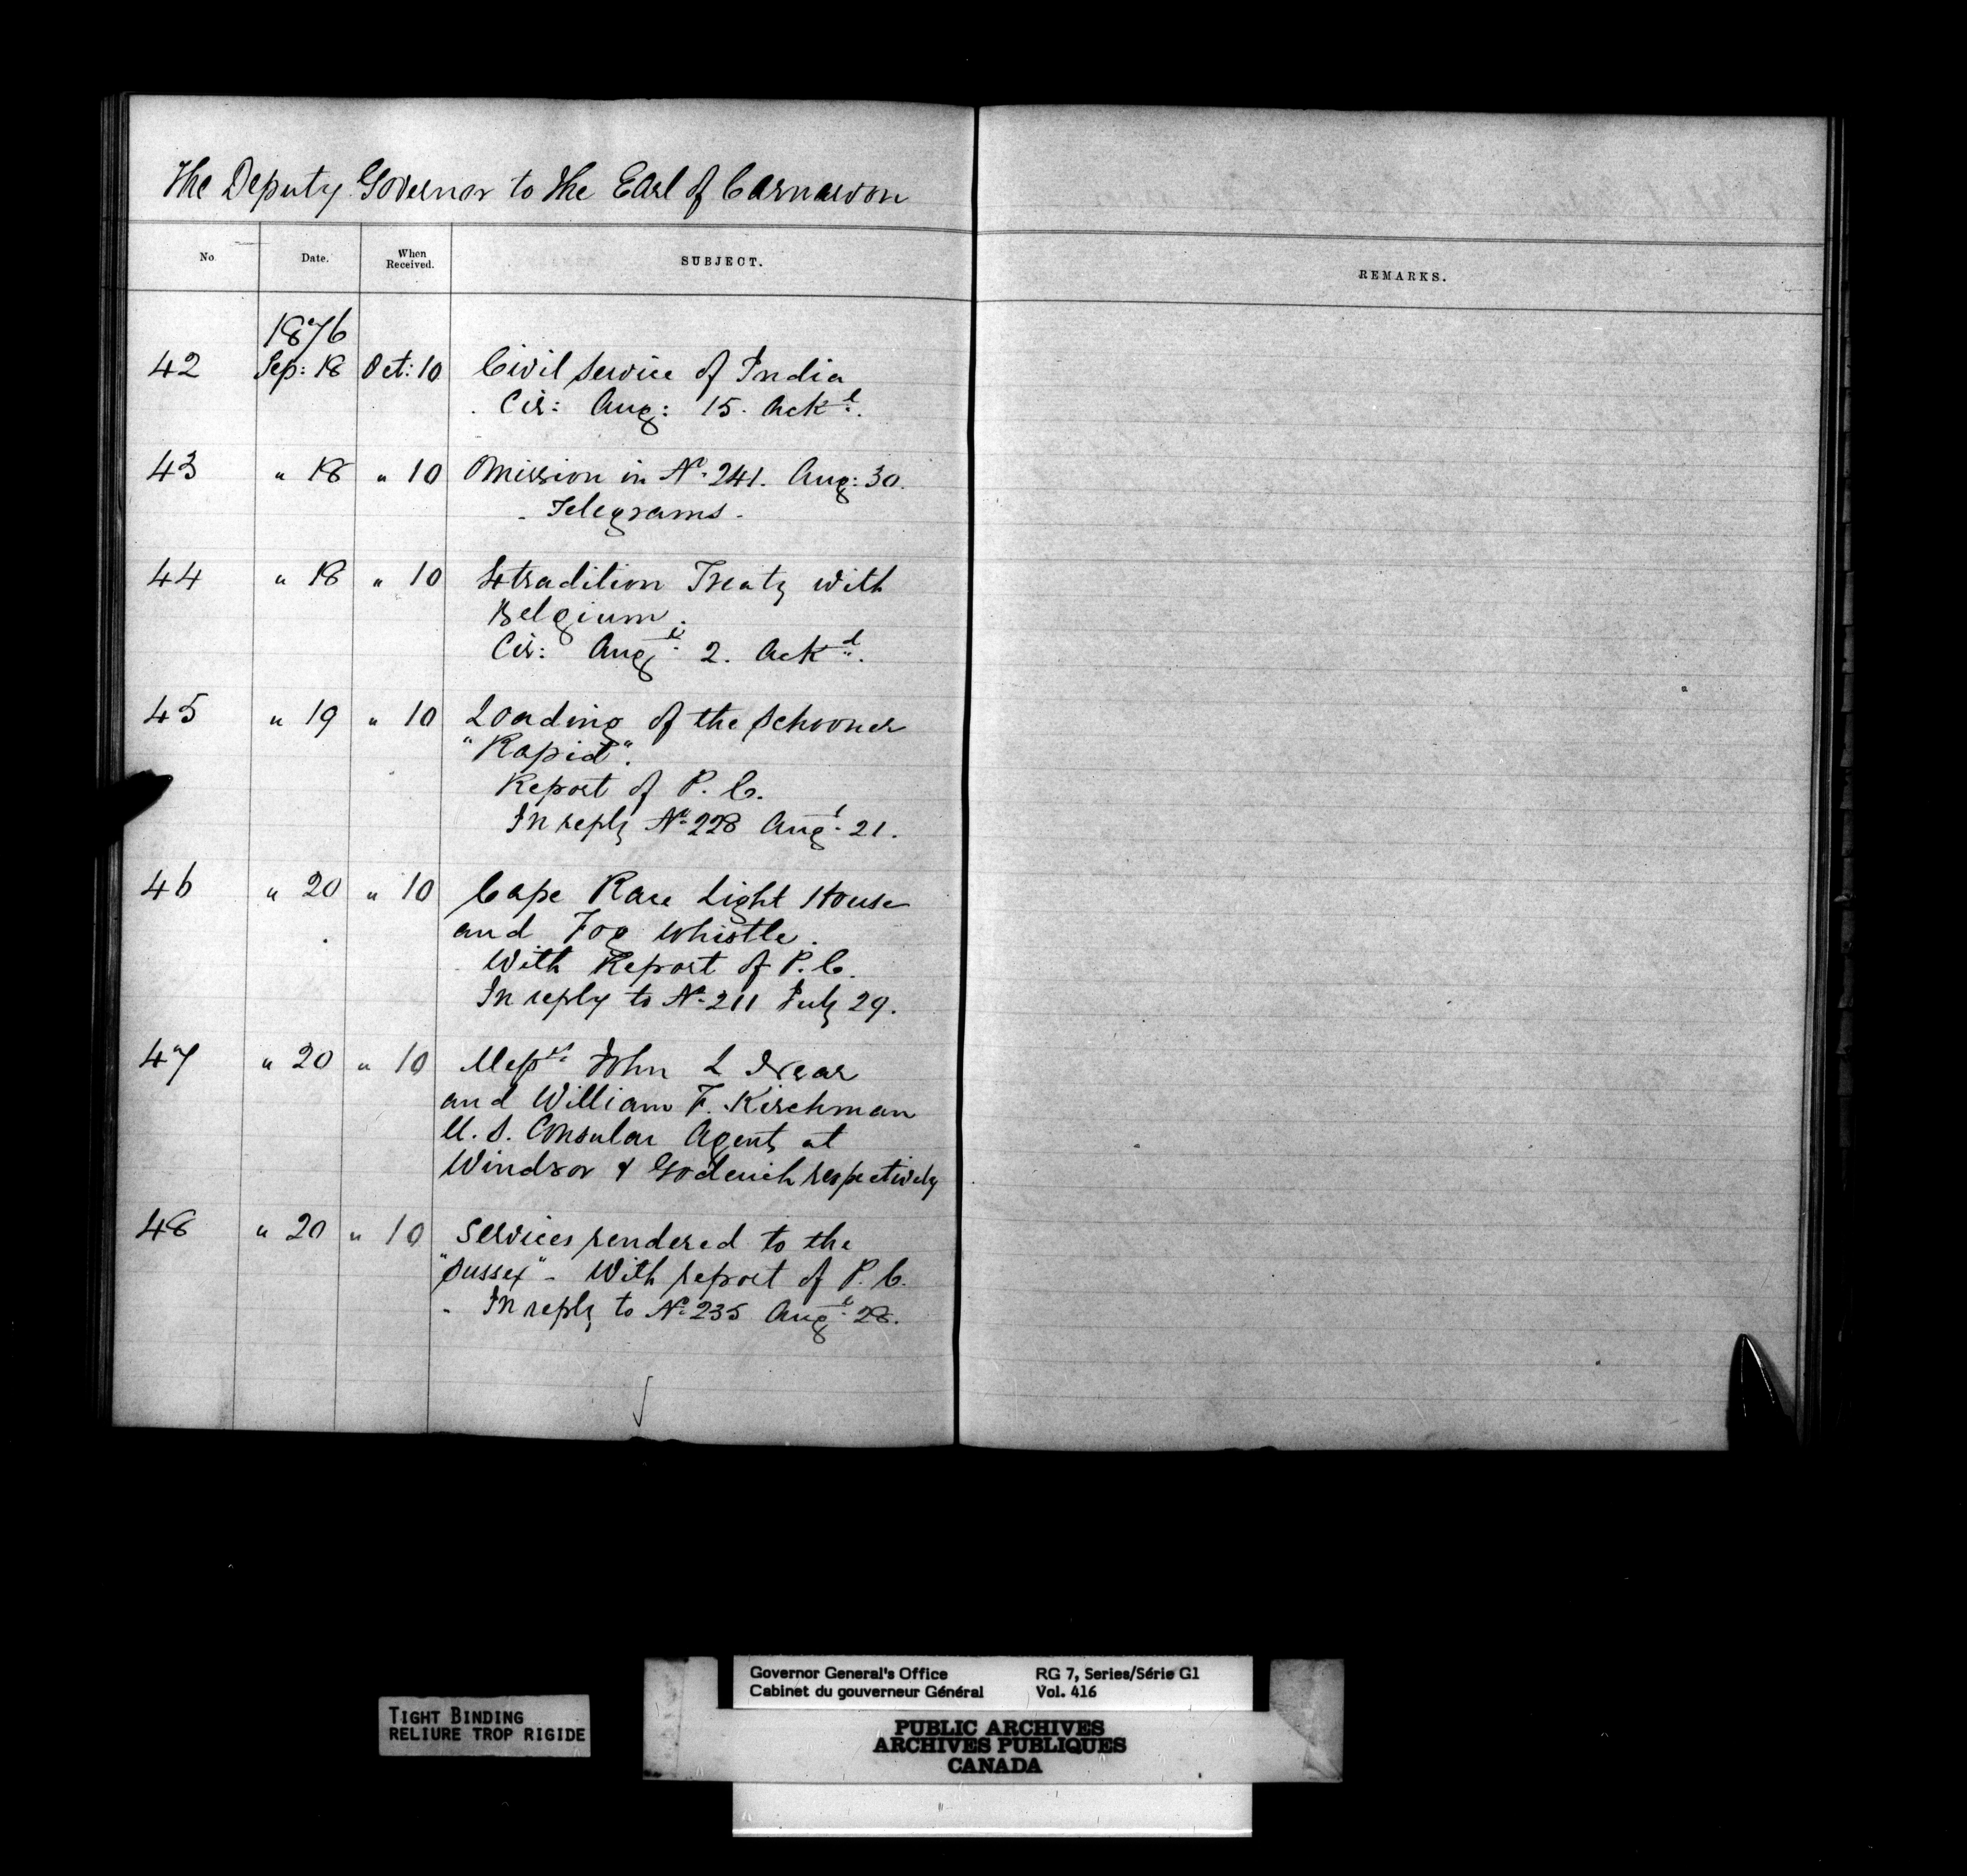 The Deputy Governor to the Earl of Carnarvon
No. Date. When Received. SUBJECT. REMARKS.
1876
42 Sep: 18 Oct: 10 Civil Service of India
Cir: Aug: 15. Ackd.
43 " 18 " 10 Omission in No. 241. Aug: 30.
- Telegrams -
44 " 18 " 10 Extradition Treaty with
Belgium.
Cir: Augt. 2. Ackd.
45 " 19 " 10 Loading of the Schooner
"Rapid".
Report of P. C.
In reply No. 228 Augt. 21.
46 " 20 " 10 Cape Race Light House
and Fog Whistle.
With Report of P. C.
In reply to No. 211 July 29.
47 " 20 " 10 Messrs. John L Near
and William F. Kirchman
U. S. Consular Agents at
Windsor & Goderich respectively
48 " 20 " 10 Services rendered to the
"Sussex" - With report of P. C.
- In reply to No. 235 Augt. 28.
TIGHT BINDING
RELIURE TROP RIGIDE
Governor General's Office RG 7, Series/Série G1
Cabinet du gouverneur Général Vol. 416
PUBLIC ARCHIVES
ARCHIVES PUBLIQUES
CANADA